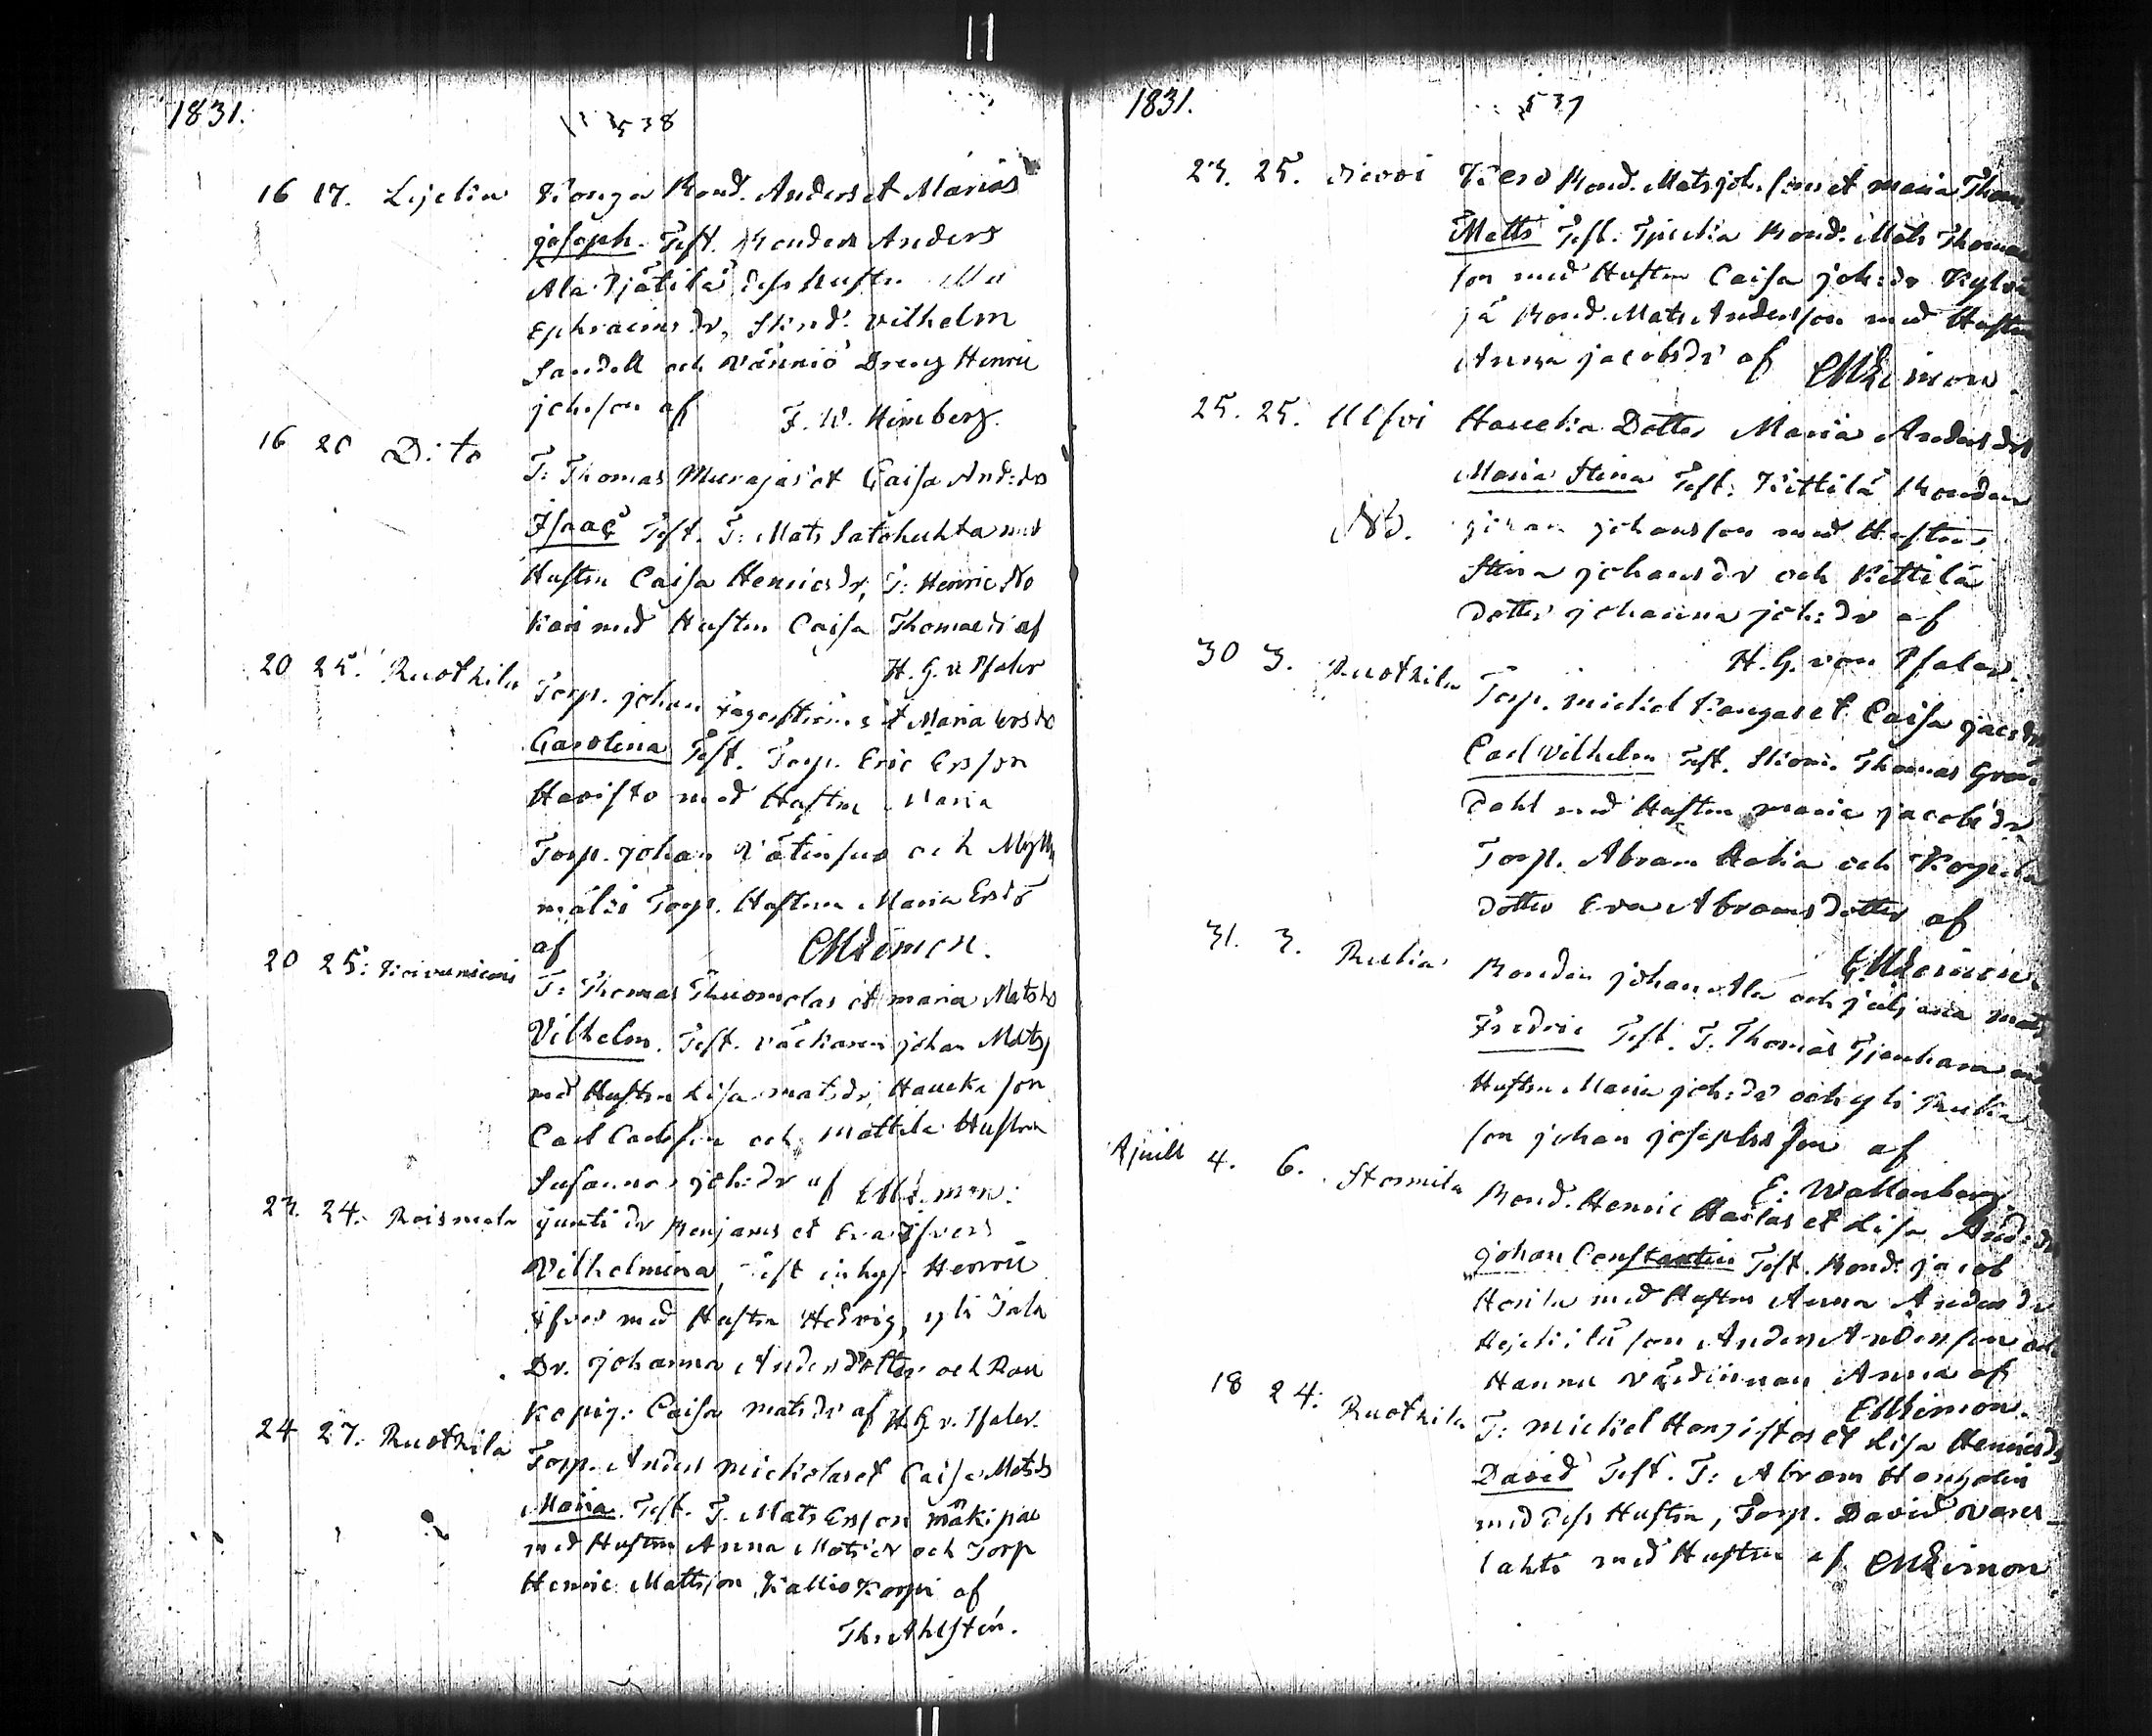 1831.
538
16 17. Lejelin Konga Bond. Anders et Marias
Joseph. Test. Bonden Anders
Ala Pjätilä, dess Hustru
Ephraims dr, Skrd. Vilhelm
Sandell och Vännio Dreng Henric
johsson af F. W. Himberg.
16 20 Dito T: Thomas Murajas et Caisa And:dr
Isaac Test. T: Mats Satohuhta med
Hustru Caisa Henricsdr, T: Henric No
kai med Hustru Caisa Thomasdr af
H. G. v Pfaler
20 25. Ruothila Torp. johan Fagerströms et Maria Ersdr
Carolina Test. Torp. Eric Ersson
Havisto med Hustru Maria
Torp. johan och Mylly
mäki Torp. Hustrun Maria Ersdr
af CMLimon.
20 25: T: Thomas Thuomolas et maria Matsdr
Vilhelm. Test. johan Mats
med Hustru Lisa matsdr, Haucka son
Carl Carlsson och Mattila Hustrun
Susanna joh:dr af CMLimon.
23. 24. Roismala Benjams et Eva Ifvers
Vilhelmina, Test inhys. Henric
Ifver med Hustru Hedvig, yli Tala
Dr. johanna Andersdotter och Rau
kopig: Caisa matsdr af H. G. v. Pfaler.
24 27. Ruothila Torp. Anders mickolas et Caisa Matsdr
Maria. Test. T. Mats Ersson mäkipae
med Hustru Anna Matsdr och Torp
Henric Mattsson Kalliokorpi af
Th: Ahlstén.
1831.
537
23. 25. Kiero Bond. Mats joh.sons et maria Thom
Matts Test. Bond. Mats Thomas
son med Hustru Caisa joh:dr Kylvä
jä Bond. Mats Andersson med Hustru
Anna jacobsdr af CMLimon.
25. 25. Ullvi Hauckia Dotter Maria Andersdrs
Maria Stina Test: Kittilä Bonden
NB. johansson med Hustru
Stina johansdr och Kittilä
Dotter johanna joh:dr af
H. G. von Pfaler.
30 3. Ruothila Torp. Mickel Kangas et Caisa jacsdr
Carl Vilhelm Test. Thomas Grön
Dahl med Hustru maria jacobsdr
Torp. Abram Hakia och Korpela
dotter Eva Abramsdotter af
CMLimon.
31. 3. Ruhia Bonden johan Ala och juljana mats
Fredric Test. T. Thomas
Hustru Maria joh:dr och yli Ruhia
son johan josephsson af
E: Wallenberg
Aprill 4. 6. Stormila Bond. Henric Hailas et Lisa And:dr
johan Constantin Test. Bond: jacob
Horila med Hustru Anna Andersdr
son Anders Andersson och
Hannu Värdinnan Anna af
CMLimon.
18 24. Ruothila T: Mickel Hongistos et Lisa Henricsdr
David Test. T: Abram
med dess Hustru, Torp. David
lahti med Hustru af CMLimon